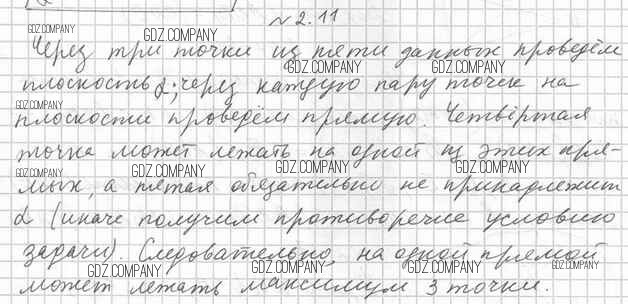 № 2.11
GDZ.COMPANY GDZ.COMPANY
Через три точки из пяти данных проведём
GDZ.COMPANY GDZ.COMPANY
плоскость α; через каждую пару точек на
GDZ.COMPANY
плоскости проведём прямую. Четвёртая
GDZ.COMPANY GDZ.COMPANY
точка может лежать на одной из этих пря-
GDZ.COMPANY GDZ.COMPANY GDZ.COMPANY
мых, а пятая обязательно не принадлежит
GDZ.COMPANY GDZ.COMPANY
α (иначе получим противоречие условию
задачи). Следовательно, на одной прямой
GDZ.COMPANY GDZ.COMPANY GDZ.COMPANY
может лежать максимум 3 точки.